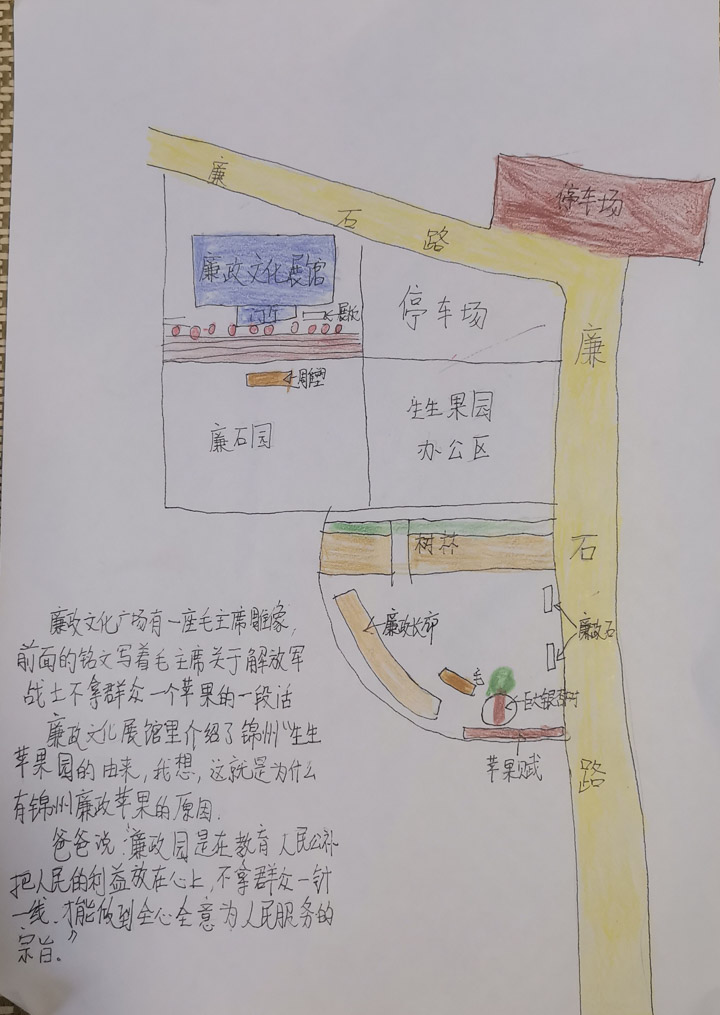 廉
石
路
停车场
廉政文化展馆
门厅
停车场
廉
雕塑
廉石园
生生果园
办公区
树林
石
廉政石
廉政长廊
毛
巨大银杏树
苹果赋
路
廉政文化广场有一座毛主席雕象,
前面的铭文写着毛主席关于解放军
战士不拿群众一个苹果的一段话
廉政文化展馆里介绍了锦州“生生
苹果园的由来,我想,这就是为什么
有锦州廉政苹果的原因.
爸爸说“廉政园是在教育人民公仆
把人民的利益放在心上,不拿群众一针
一线.才能做到全心全意为人民服务的
宗旨。”